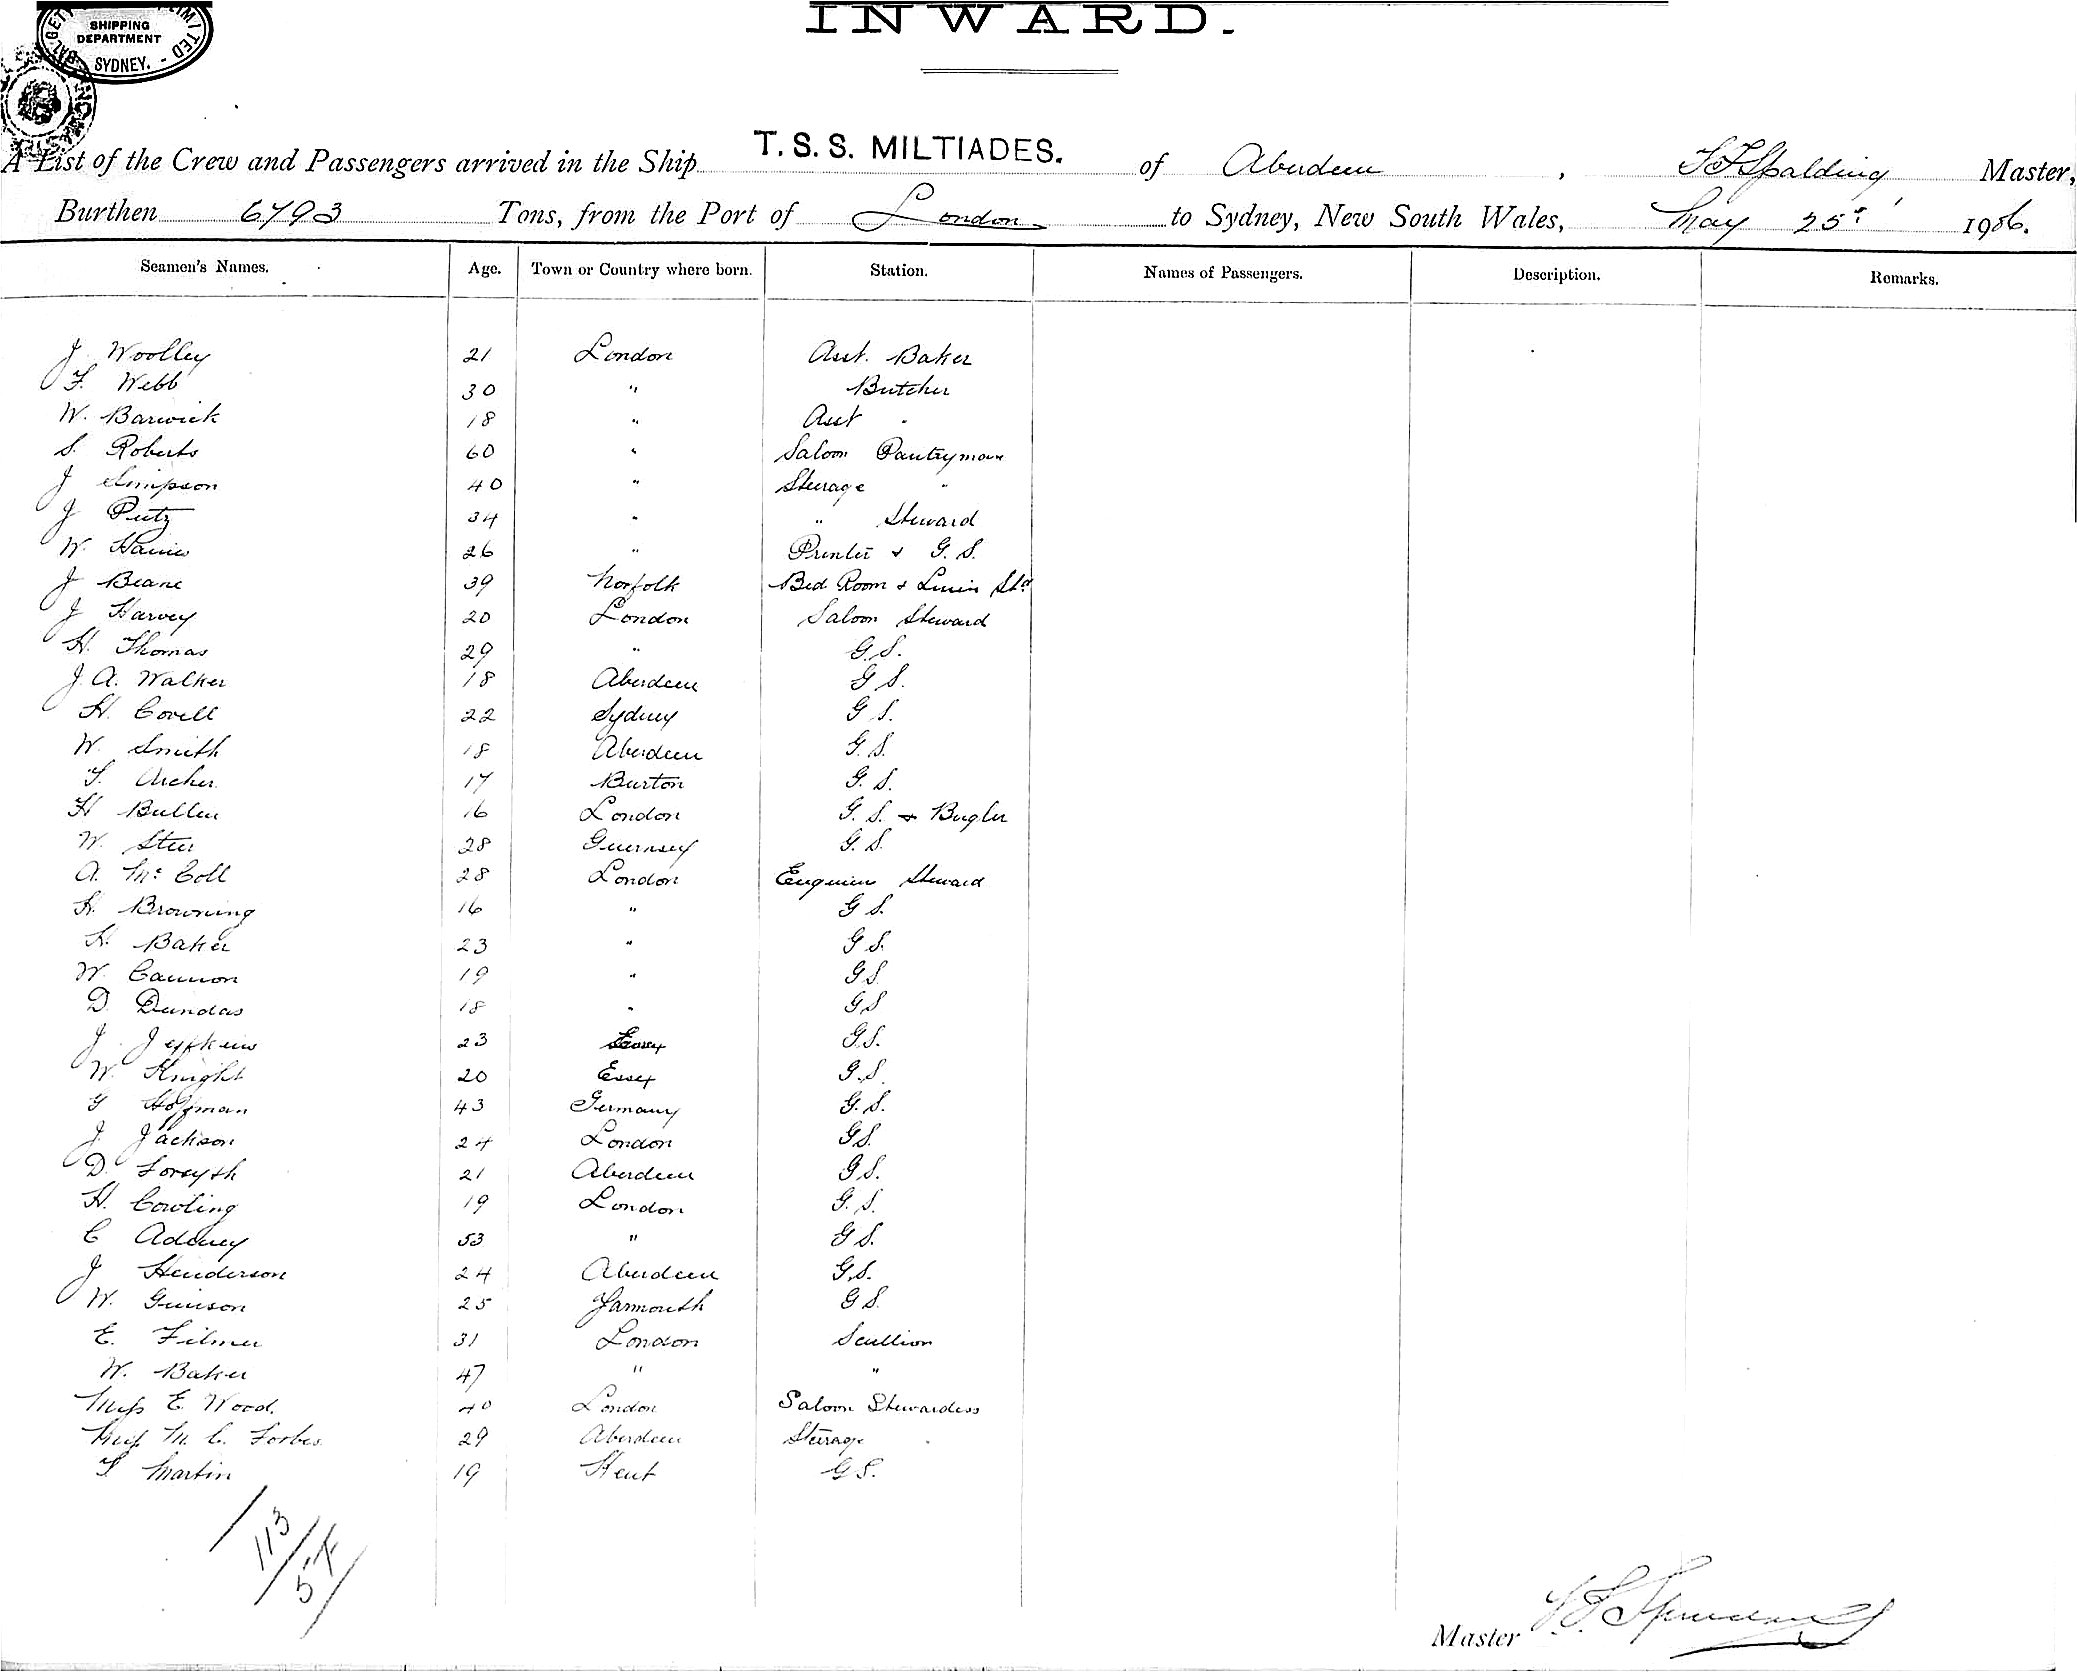 SHIPPING
DEPARTMENT
SYDNEY.
INWARD.
A List of the Crew and Passengers arrived in the Ship T.S.S. MILTIADES. of Aberdeen, Spalding Master,
Burthen 6793 Tons, from the Port of London to Sydney, New South Wales, May 25th 1906.
Seamen's Names. Age. Town or Country where born. Station. Names of Passengers. Description. Remarks.
J Woolley 21 London Asst. Baker
F. Webb 30 " Butcher
W. Barwick 18 " Asst "
S. Roberts 60 " Saloon Pantryman
J Simpson 40 " Steerage "
J Peitz 34 " " Steward
W. 26 " Printer & G. S.
J Beane 39 Norfolk Bed Room & Linen Std
J Harvey 20 London Saloon Steward
H. Thomas 29 " G.S.
J. A. Walker 18 Aberdeen G S.
H. Covell 22 Sydney G S.
W. Smith 18 Aberdeen G. S.
Archer 17 Burton G. S.
H Bullen 16 London G. S. & Bugler
W. Steer 28 Guernsey G. S.
A. McColl 28 London Engineers Steward
H. Browning 16 " G S.
H. Baker 23 " G S.
W. Cannon 19 " G S
D. Dundas 18 " G S
J. Jeffkins 23 G.S.
W. Knight 20 Essex G.S.
G Hoffman 43 Germany G. S.
J. Jackson 24 London G S.
D. Forsyth 21 Aberdeen G S.
H. Cowling 19 London G. S.
C Adeney 53 " G S.
J Henderson 24 Aberdeen G.S.
W. 25 Yarmouth G S.
E. Filmer 31 London Scullion
W. Baker 47 " "
Miss E. Wood. 40 London Saloon Stewardess
Miss M. C. Forbes 29 Aberdeen Steerage "
Martin 19 Kent G S.
/113/54/
Master